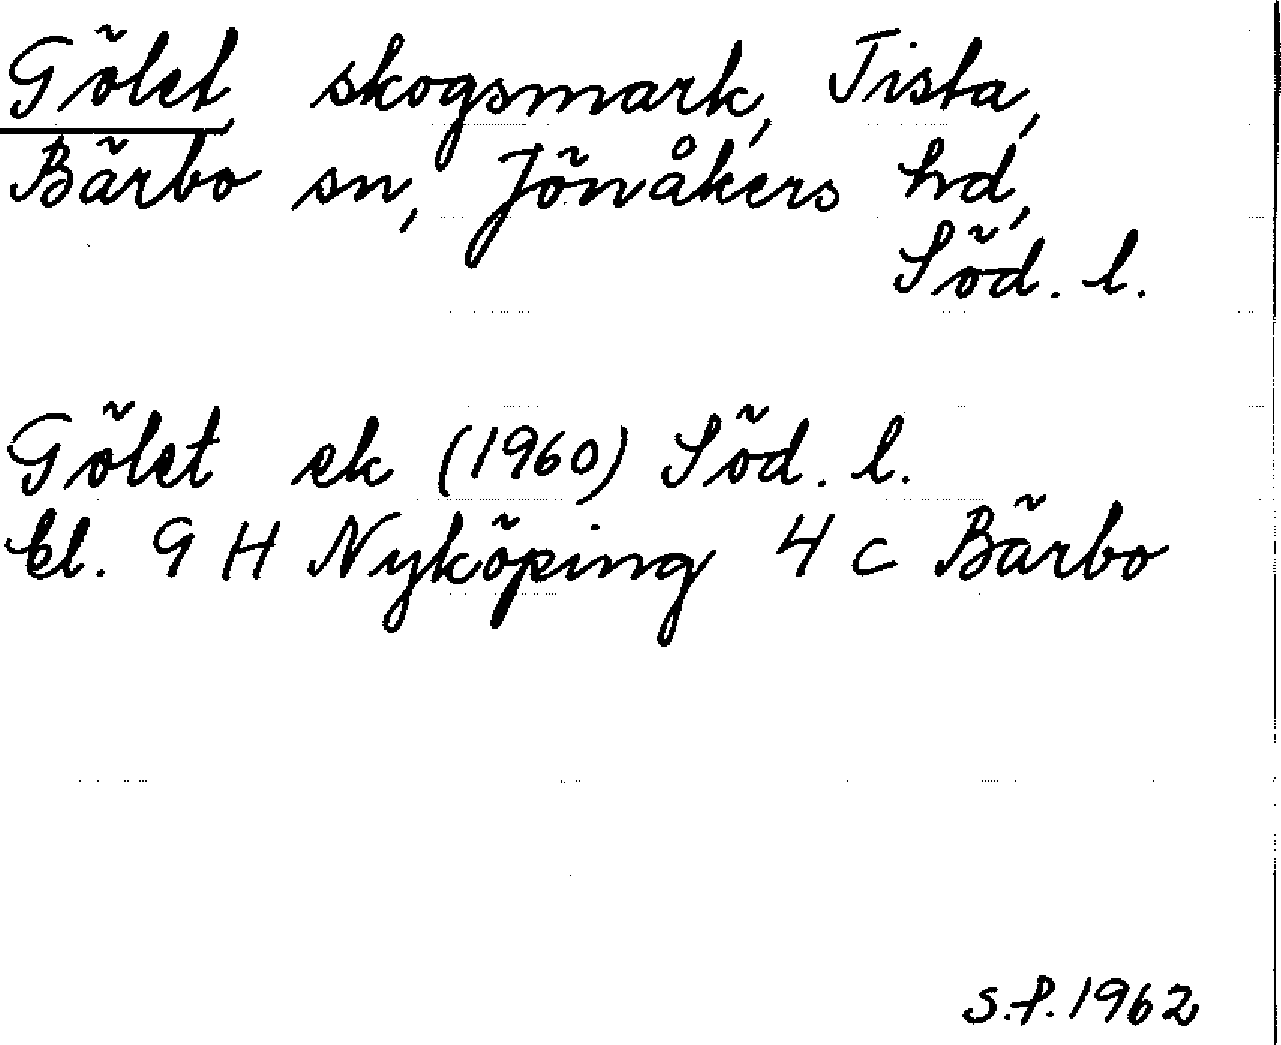 Gölet, skogsmark, Tista,
Bärbo sn, Jönåkers hd,
Söd. l.
Gölet ek (1960) Söd. l.
bl. 9 H Nyköping 4 c Bärbo
S.F. 1962